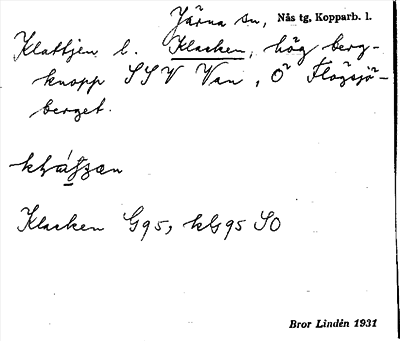 Järna sn, Näs tg, Kopparb. l.
Klattjen l. Klacken, hög berg-
knopp SSV Van, Ö Flögsjö-
berget.
Klacken G95, kG95 SO
Bror Lindén 1931